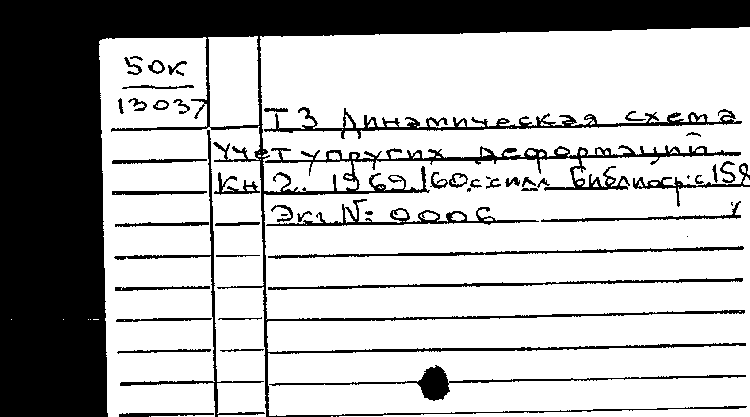 50К
13037
ТЗ Динамическая схема
Учет упругих деформаций.
Кн 2. 1969. 160с. Библиогр: с.158
Экг. №: 0006